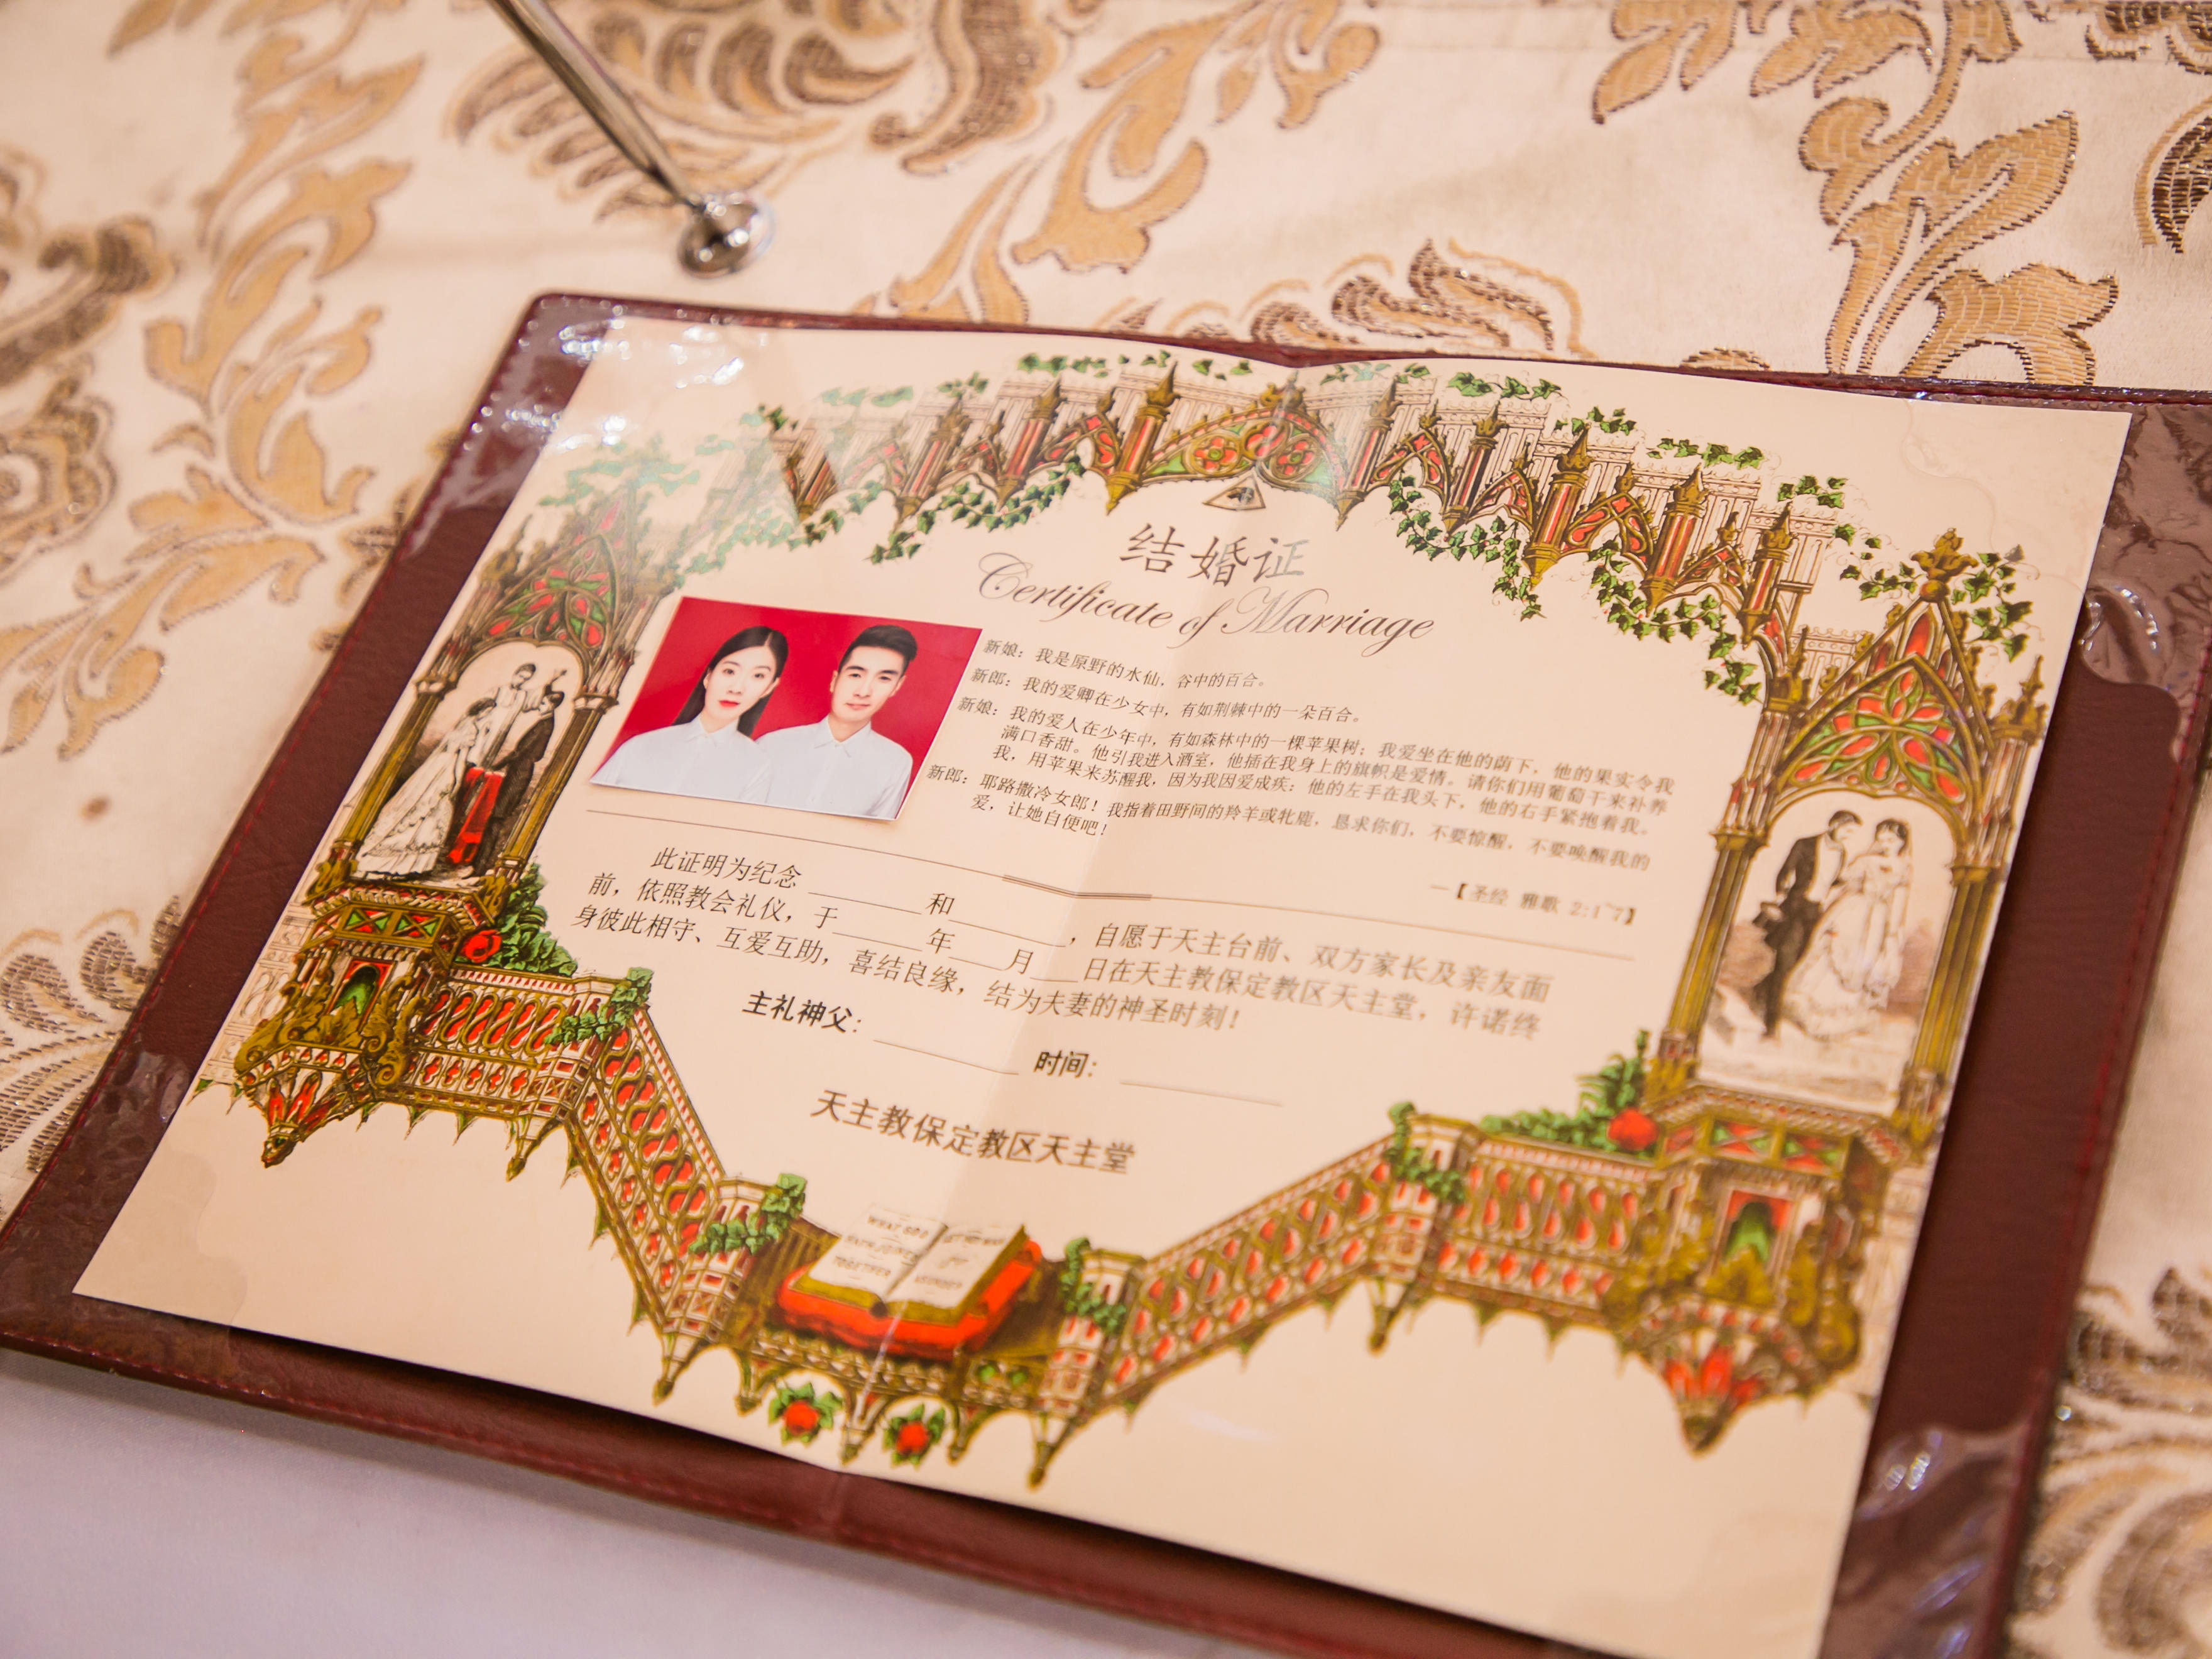 结婚证
Certificate of Marriage
新娘：我是原野的水仙，谷中的百合。
新郎：我的爱卿在少女中，有如荆棘中的一朵百合。
新娘：我的爱人在少年中，有如森林中的一棵苹果树；我爱坐在他的荫下，他的果实令我
满口香甜。他引我进入酒室，他插在我身上的旗帜是爱情。请你们用葡萄干来补养
我，用苹果来苏醒我，因为我因爱成疾：他的左手在我头下，他的右手紧抱着我。
新郎：耶路撒冷女郎！我指着田野间的羚羊或牝鹿，恳求你们，不要惊醒，不要唤醒我的
爱，让她自便吧！
—【圣经 雅歌 2:1~7】
此证明为纪念________和________，自愿于天主台前、双方家长及亲友面
前，依照教会礼仪，于______年____月____日在天主教保定教区天主堂，许诺终
身彼此相守、互爱互助，喜结良缘，结为夫妻的神圣时刻！
主礼神父：__________ 时间：__________
天主教保定教区天主堂
WHAT GOD
HATH JOINED
TOGETHER
LET NO MAN
PUT
ASUNDER